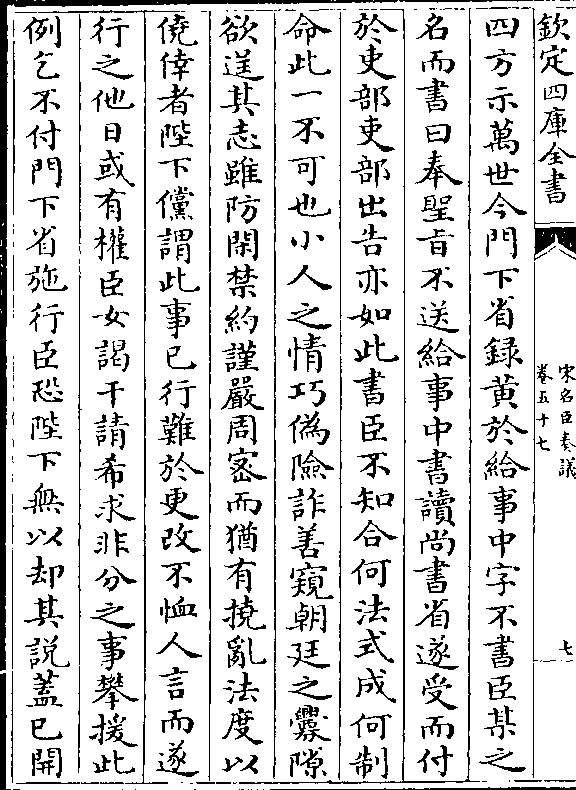 欽定四庫全書
宋名臣奏議
卷五十七
七
四方示萬世今門下省録黄於給事中字不書臣某之
名而書曰奉聖㫖不送給事中書讀尚書省遂受而付
於吏部吏部出告亦如此書臣不知合何法式成何制
命此一不可也小人之情巧偽險詐善窺朝廷之釁隙
欲逞其志雖防閑禁約謹嚴周宻而猶有撓亂法度以
僥倖者陛下儻謂此事已行難於更改不恤人言而遂
行之他日或有權臣女謁干請希求非分之事攀援此
例乞不付門下省施行臣恐陛下無以却其説蓋已開